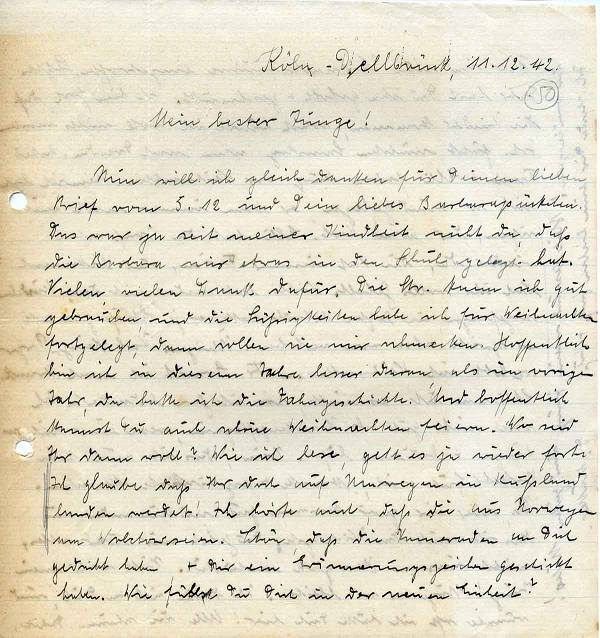 Köln - Dellbrück, 11.12.42.
50
Mein bester Junge!
Nun will ich gleich danken für Deinen lieben
Brief vom 5.12 und Dein liebes Barbarapäckchen.
Das war ja seit meiner Kindheit nicht da, daß
die Barbara mir etwas in den Schuh gelegt hat.
Vielen, vielen Dank dafür. Die Str. kann ich gut
gebrauchen und die Süßigkeiten habe ich für Weihnachten
fortgelegt, dann sollen sie mir schmecken. Hoffentlich
bin ich in diesem Jahre besser daran als im vorigen
Jahr, da hatte ich die Zahngeschichte. Und hoffentlich
kannst Du auch schöne Weihnachten feiern. Wo seid
Ihr dann wohl? Wie ich lese, geht es ja wieder fort.
Ich glaube daß Ihr doch auf Umwegen in Rußland
landen werdet! Ich hörte auch daß die aus Norwegen
am seien. Schön daß die Kameraden an Dich
gedacht haben + Dir ein Erinnerungszeichen geschickt
haben. Wie fühlst Du Dich in der neuen Einheit?